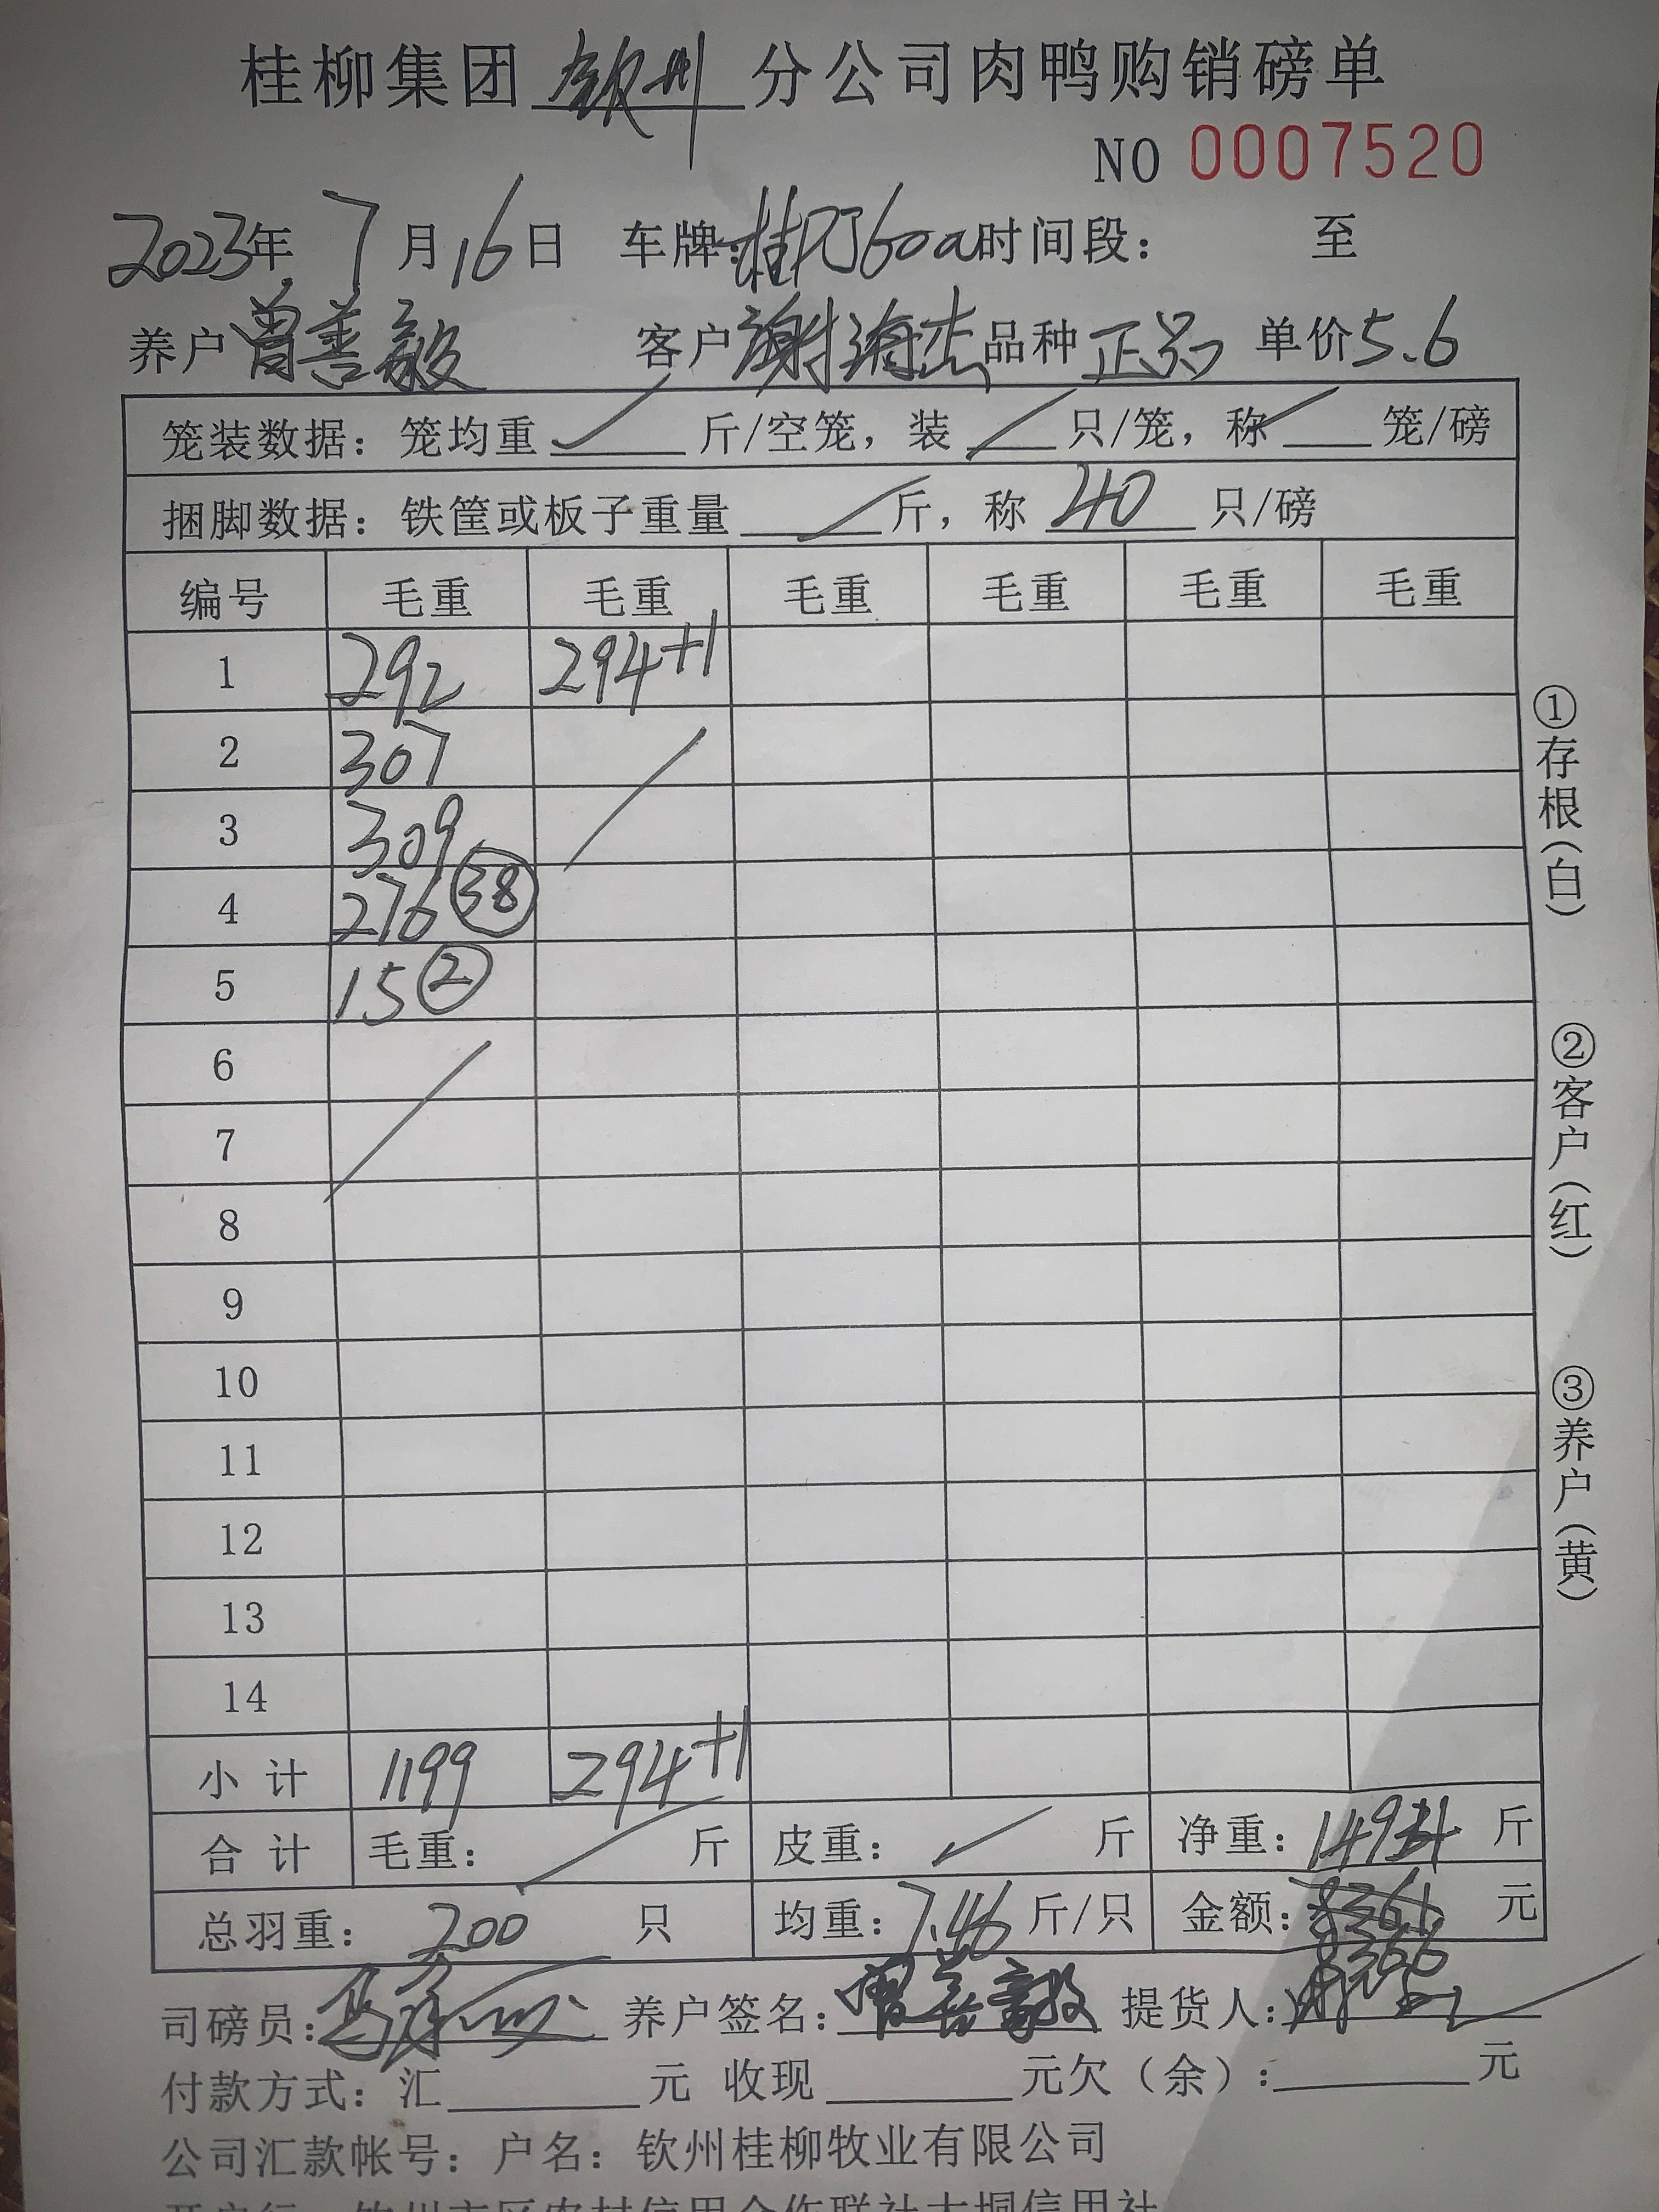 桂柳集团 钦州 分公司肉鸭购销磅单
NO 0007520
2023年 7月16日 车牌: 时间段: 至
养户 曾善毅 客户 谢海杰 品种 正品 单价 5.6
笼装数据: 笼均重 斤/空笼, 装 只/笼, 称 笼/磅
捆脚数据: 铁筐或板子重量 斤, 称 40 只/磅
编号 毛重 毛重 毛重 毛重 毛重 毛重
1 292 294+1
2 307
3 309
4 276 38
5 15 2
6
7
8
9
10
11
12
13
14
小计 1199 294+1
合计 毛重: 斤 皮重: 斤 净重: 1494 斤
总羽重: 200 只 均重: 7.46 斤/只 金额: 8366 元
司磅员: 养户签名: 曾善毅 提货人:
付款方式: 汇 元 收现 元欠(余): 元
公司汇款帐号: 户名: 钦州桂柳牧业有限公司
开户行: 钦州市区农村信用合作联社大垌信用社
①存根(白)
②客户(红)
③养户(黄)